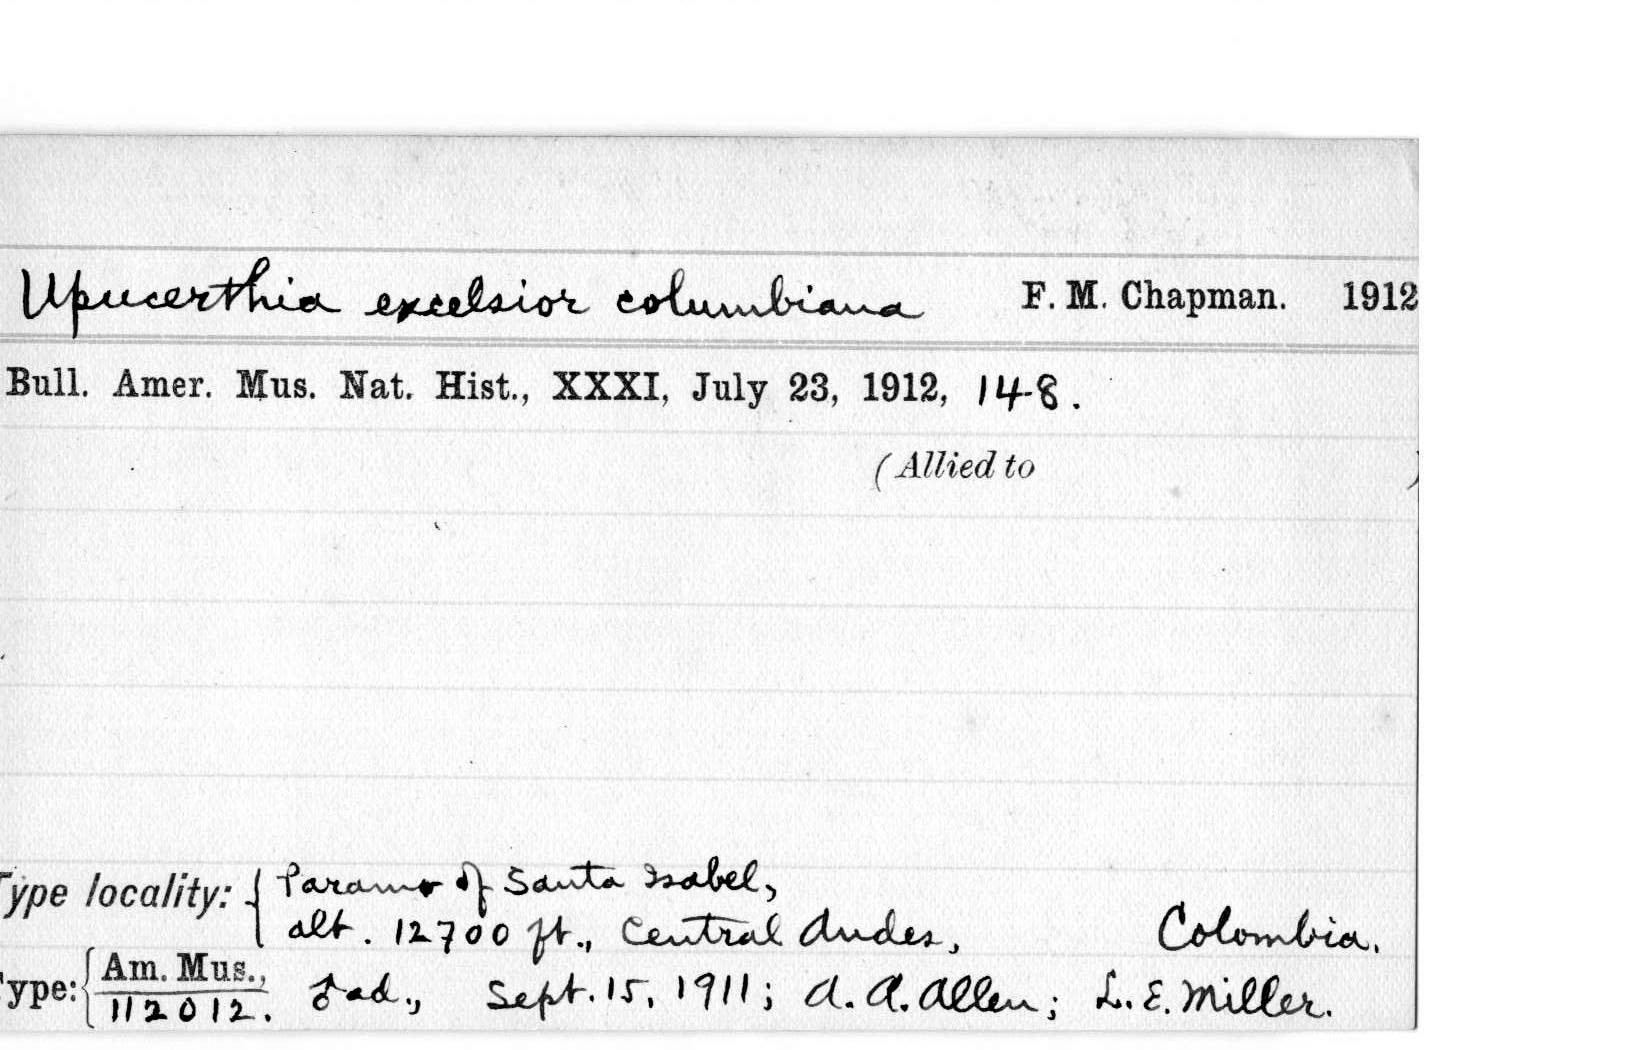 Upucerthia excelsior columbiana F. M. Chapman. 1912
Bull. Amer. Mus. Nat. Hist., XXXI, July 23, 1912, 148.
(Allied to )
Type locality: { Paramo of Santa Isabel,
alt. 12700 ft., Central Andes, Colombia.
Type: { Am. Mus., ♂ ad., Sept. 15, 1911; A. A. Allen; L. E. Miller.
112012.